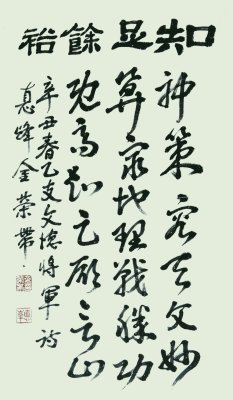 知足餘裕
神策究天文妙
算窮地理戰勝功
旣高知足願云止
辛丑春乙支文德將軍詩
惠峰金榮帶